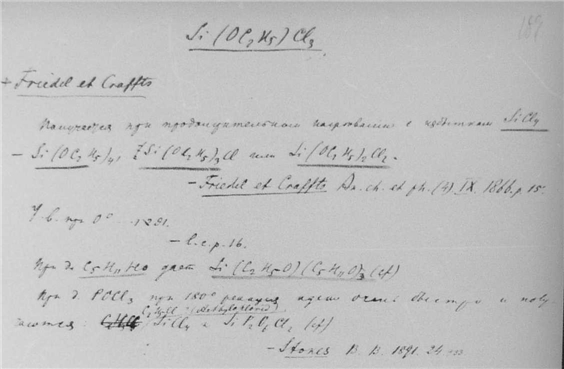 187
Si (OC2H5) Cl3
+ Friedel et Craffts
Получается при продолжительном нагревании с избытком SiCl4
— Si(OC2H5)4, Si(OC2H5)3Cl или Si(OC2H5)2Cl2.
— Friedel et Craffts An. ch. et ph. (4) IX. 1866. p. 15
У. в. при 0° ... 1291.
— l. c. p. 16.
При д. C5H11HO дает Si(C2H5O)(C5H11O)3 (cf)
При д. POCl3 при 180° реакция идет очень быстро и полу
C2H5Cl (Aethylchlorid)
чаются SiCl4 и Cl2 (cf)
— Stokes B. B. 1891. 24